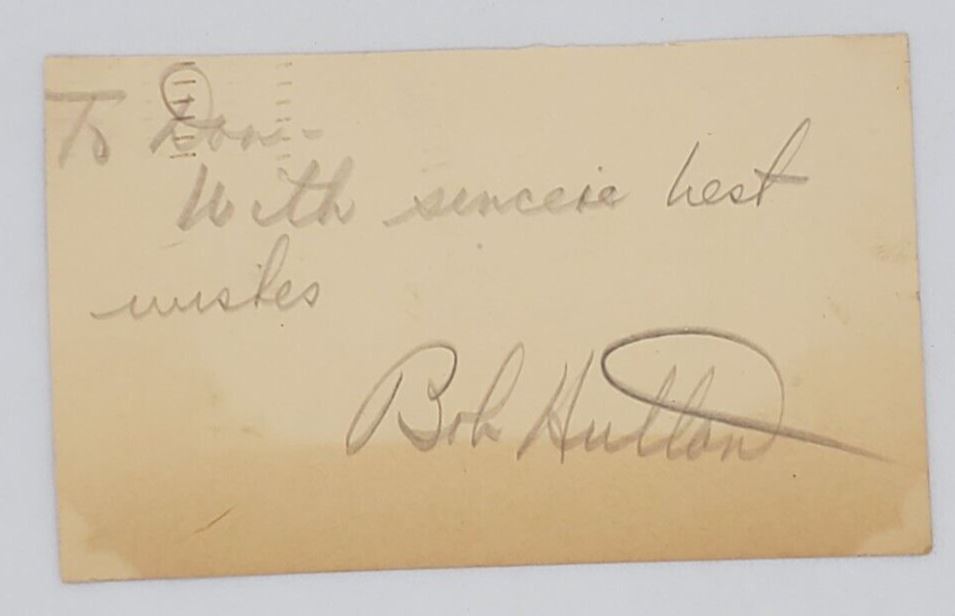 To Don-
With sincere best
wishes
Bob Hutton